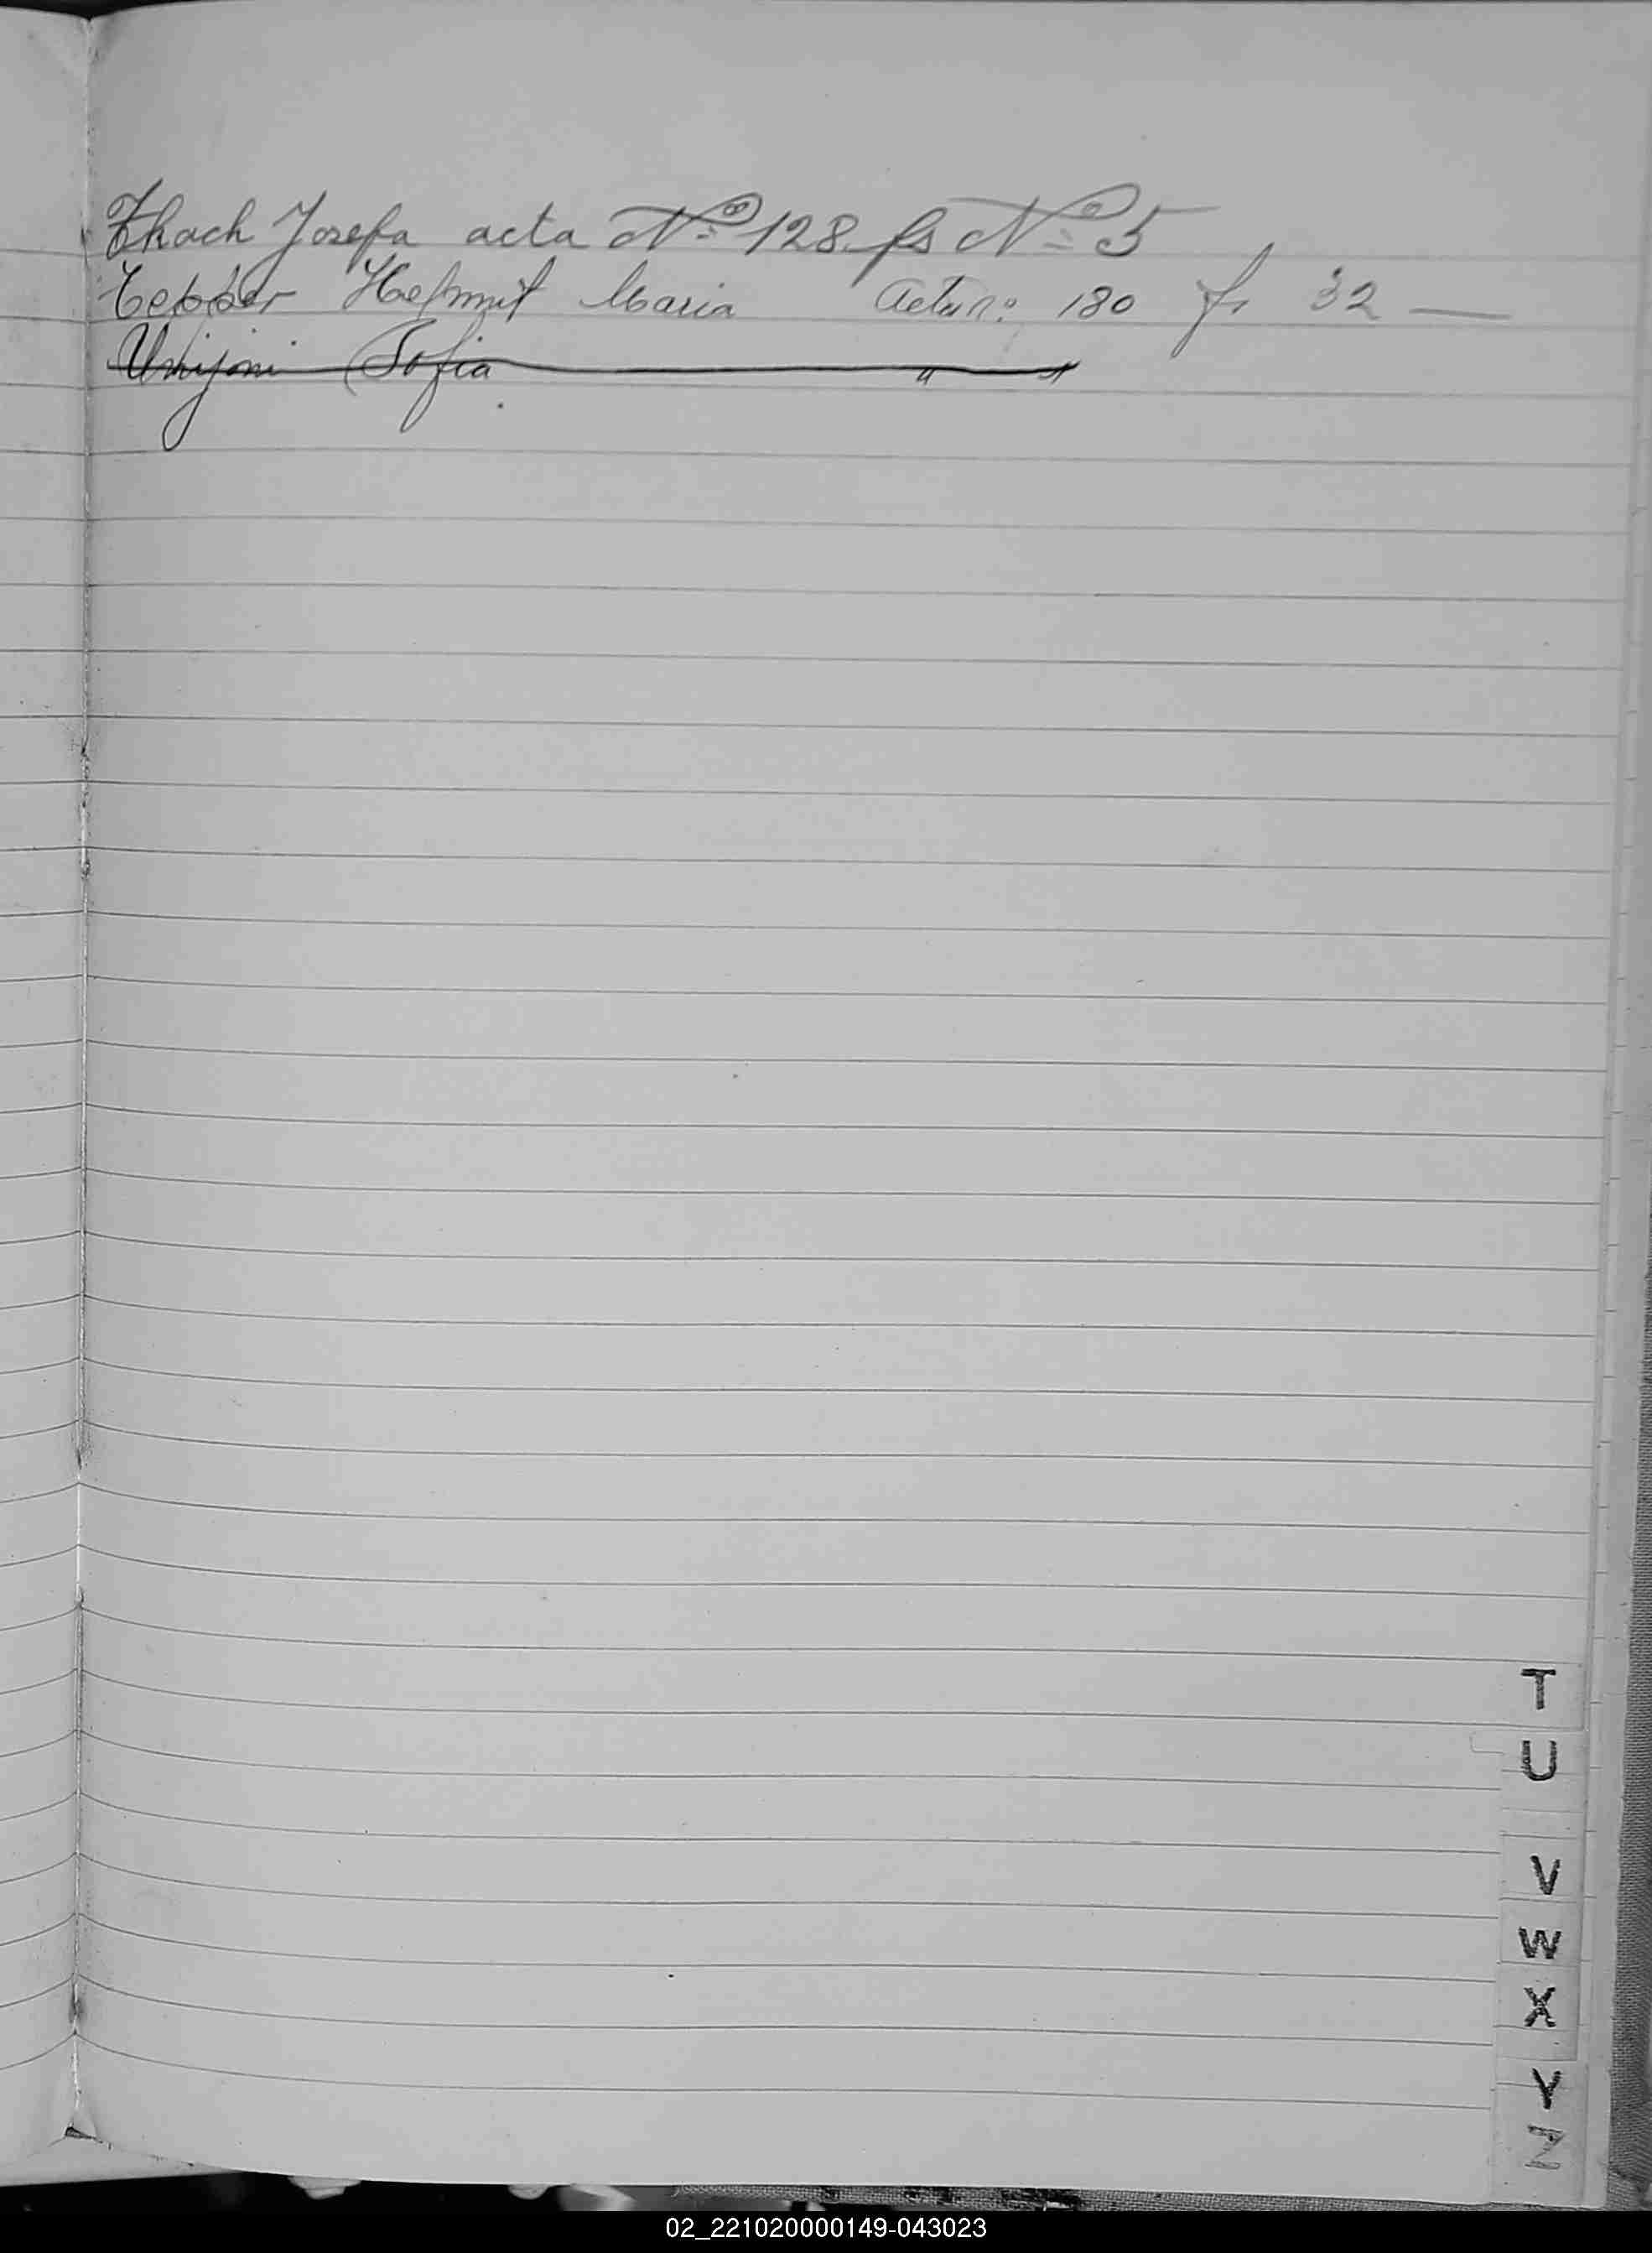 Tkach Josefa acta Nº 128 fs Nº 5
Tepper Helmut Maria Acta n: 180 fs 32 —
Sofia " "
T
U
V
W
X
Y
Z
02_221020000149-043023